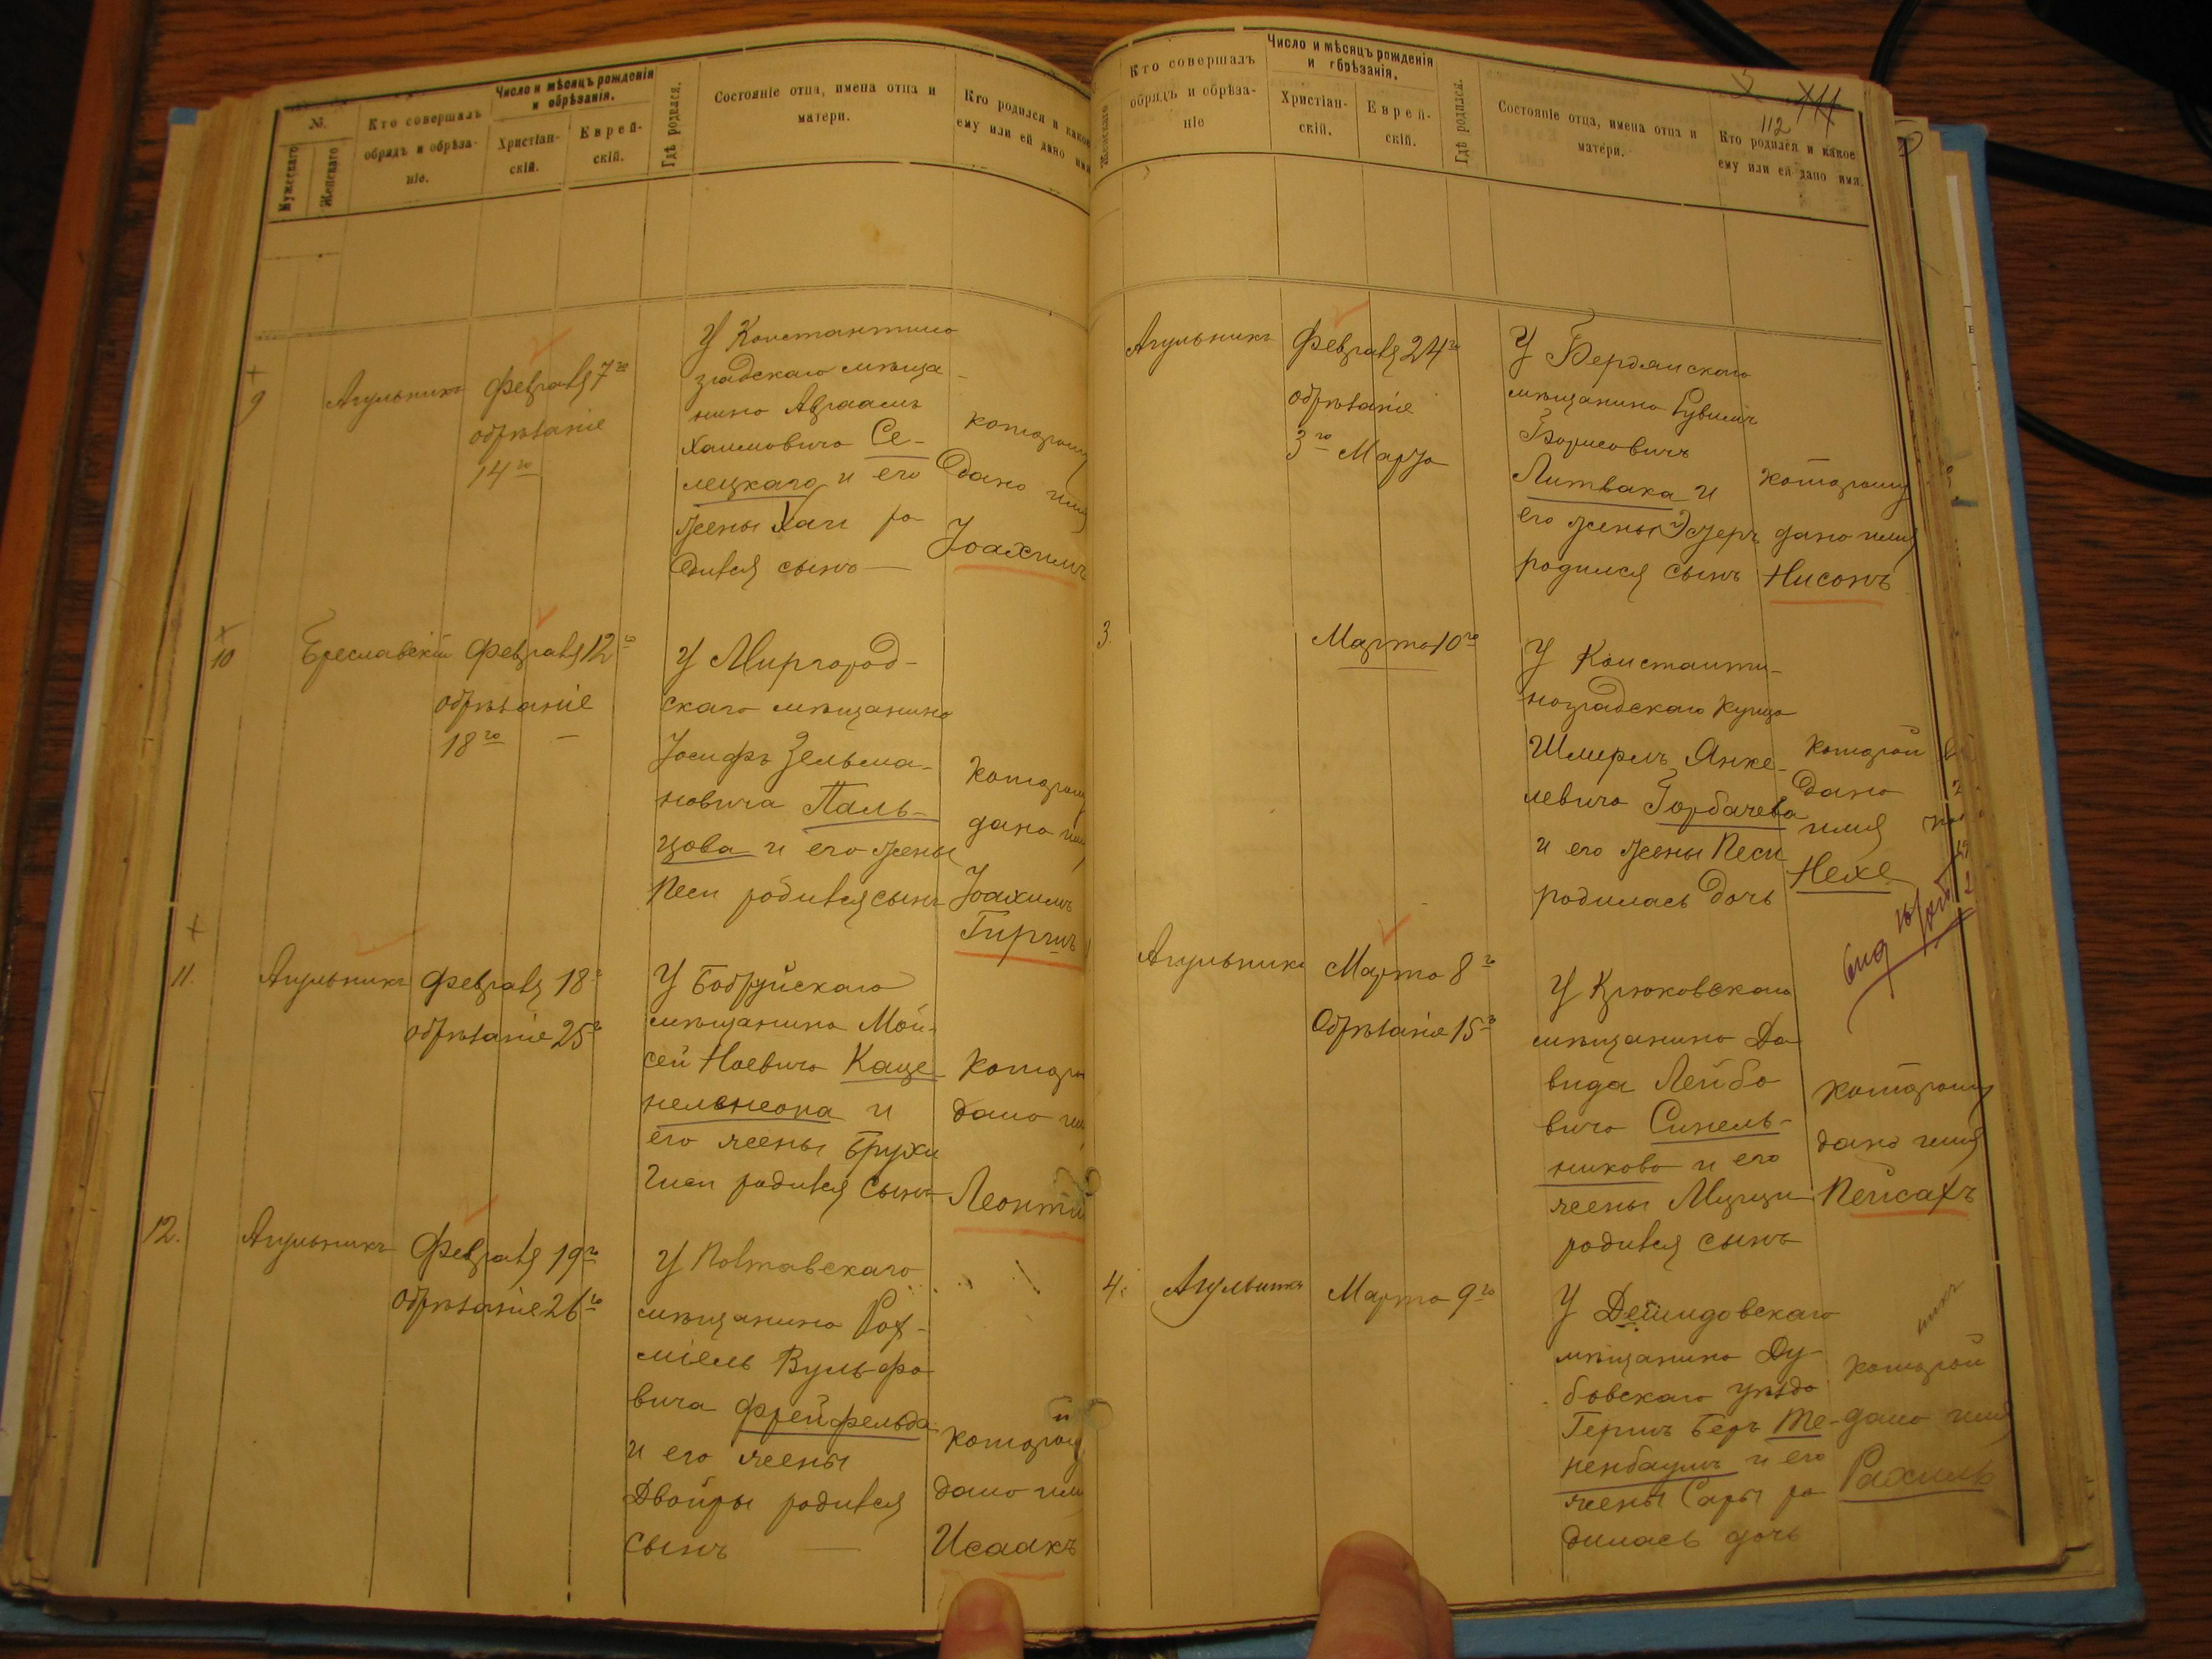 №.
Мужескаго
Женскаго
Кто совершалъ
обрядъ и обрѣза-
ніе.
Число и мѣсяцъ рожденія
и обрѣзанія.
Христіан-
скій.
Еврей-
скій.
Гдѣ родился.
Состояніе отца, имена отца и
матери.
Кто родился и какое
ему или ей дано имя
9
Агульникъ
Февраля 7го
обрѣзаніе
14го
У Константино
градскаго мѣща
нина Авраамъ
Хаимовича Се-
лецкаго и его
жены Хаи ро
дился сынъ
которому
дано имя
Іоахимъ
10
Бреславскій
Февраля 12го
обрѣзаніе
18го
У Миргород-
скаго мѣщанина
Іосифъ Зельма-
новича Паль-
цова и его жены
Песи родился сынъ
которому
дано имя
Іоахимъ
Гиршъ
11.
Агульникъ
Февраля 18го
обрѣзаніе 25го
У Бобруйскаго
мѣщанина Мой-
сей Ноевича Каце-
нельнсона и
его жены Брухи
Гиси родился сынъ
дано
Леонтій
12.
Агульникъ
Февраля 19го
обрѣзаніе 26го
У Полтавскаго
мѣщанина
Вульфо
вича Фрейфельда
и его жены
Двойры родился
сынъ
дано имя
Исаакъ
Женскаго
Кто совершалъ
обрядъ и обрѣза-
ніе
Число и мѣсяцъ рожденія
и обрѣзанія.
Христіан-
скій.
Еврей-
скій.
Гдѣ родился.
Состояніе отца, имена отца и
матери.
112
Кто родился и какое
ему или ей дано имя.
Агульникъ
Февраля 24го
обрѣзаніе
3го Марта
У Бердянскаго
мѣщанина Рувимъ
Борисовичъ
Литвака и
его жены Эстеръ
родился сынъ
которому
дано имя
Нисонъ
3.
Марта 10го
У Константи-
ноградскаго купца
Шмерлъ Янке-
левича Горбачева
и его жены Песи
родилась дочь
которой
дано
имя
Нехе
Агульникъ
Марта 8го
Обрѣзаніе 15го
У Крюковскаго
мѣщанина Да
вида Лейбо
вича Синель-
никова и его
жены
родился сынъ
которому
дано имя
Пейсахъ
4.
Агульникъ
Марта 9го
У Демидовскаго
мѣщанина Ду-
бовскаго уѣзда
Гершъ Беръ Те-
ненбаумъ и его
жены Сары ро
дилась дочь
которой
дано имя
Рахиль